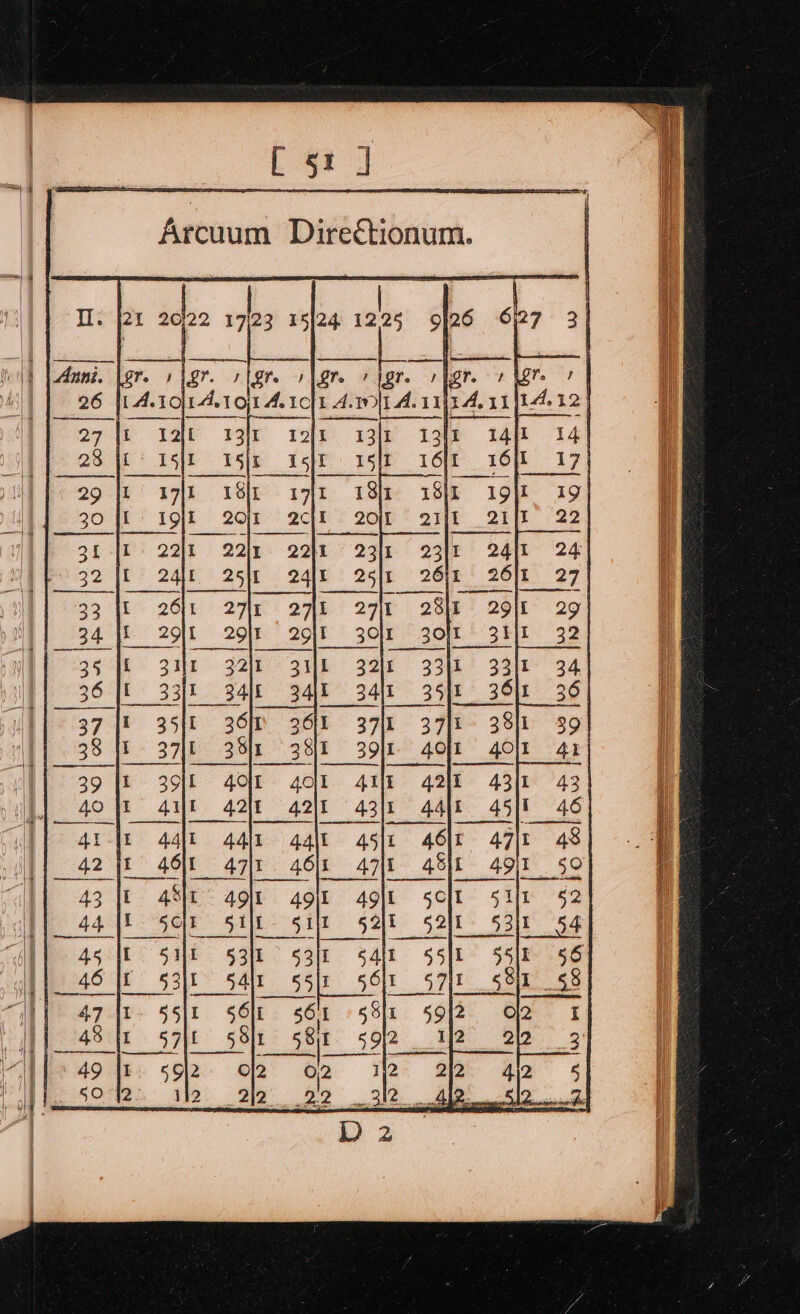 [ 51 ]
Arcuum Directionum.
II. | 21 20 | 22 17 | 23 15 | 24 12 | 25 9 | 26 6 | 27 3
Anni. | gr. ′ | gr. ′ | gr. ′ | gr. ′ | gr. ′ | gr. ′ | gr. ′
26 | 1 A. 10 | 1 A. 10 | 1 A. 10 | 1 A. 10 | 1 A. 11 | 1 A. 11 | 1 A. 12
27 | 1 12 | 1 13 | 1 12 | 1 13 | 1 13 | 1 14 | 1 14
28 | 1 15 | 1 15 | 1 15 | 1 15 | 1 16 | 1 16 | 1 17
29 | 1 17 | 1 18 | 1 17 | 1 18 | 1 18 | 1 19 | 1 19
30 | 1 19 | 1 20 | 1 20 | 1 20 | 1 21 | 1 21 | 1 22
31 | 1 22 | 1 22 | 1 22 | 1 23 | 1 23 | 1 24 | 1 24
32 | 1 24 | 1 25 | 1 24 | 1 25 | 1 26 | 1 26 | 1 27
33 | 1 26 | 1 27 | 1 27 | 1 27 | 1 28 | 1 29 | 1 29
34 | 1 29 | 1 29 | 1 29 | 1 30 | 1 30 | 1 31 | 1 32
35 | 1 31 | 1 32 | 1 31 | 1 32 | 1 33 | 1 33 | 1 34
36 | 1 33 | 1 34 | 1 34 | 1 34 | 1 35 | 1 36 | 1 36
37 | 1 35 | 1 36 | 1 36 | 1 37 | 1 37 | 1 38 | 1 39
38 | 1 37 | 1 38 | 1 38 | 1 39 | 1 40 | 1 40 | 1 41
39 | 1 39 | 1 40 | 1 40 | 1 41 | 1 42 | 1 43 | 1 43
40 | 1 41 | 1 42 | 1 42 | 1 43 | 1 44 | 1 45 | 1 46
41 | 1 44 | 1 44 | 1 44 | 1 45 | 1 46 | 1 47 | 1 48
42 | 1 46 | 1 47 | 1 46 | 1 47 | 1 48 | 1 49 | 1 50
43 | 1 48 | 1 49 | 1 49 | 1 49 | 1 50 | 1 51 | 1 52
44 | 1 50 | 1 51 | 1 51 | 1 52 | 1 52 | 1 53 | 1 54
45 | 1 51 | 1 53 | 1 53 | 1 54 | 1 55 | 1 55 | 1 56
46 | 1 53 | 1 54 | 1 55 | 1 56 | 1 57 | 1 58 | 1 58
47 | 1 55 | 1 56 | 1 56 | 1 58 | 1 59 | 2 0 | 2 1
48 | 1 57 | 1 58 | 1 58 | 1 59 | 2 1 | 2 2 | 2 3
49 | 1 59 | 2 0 | 2 0 | 2 1 | 2 2 | 2 4 | 2 5
50 | 2 1 | 2 2 | 2 2 | 2 3 | 2 4 | 2 5 | 2 7
D 2